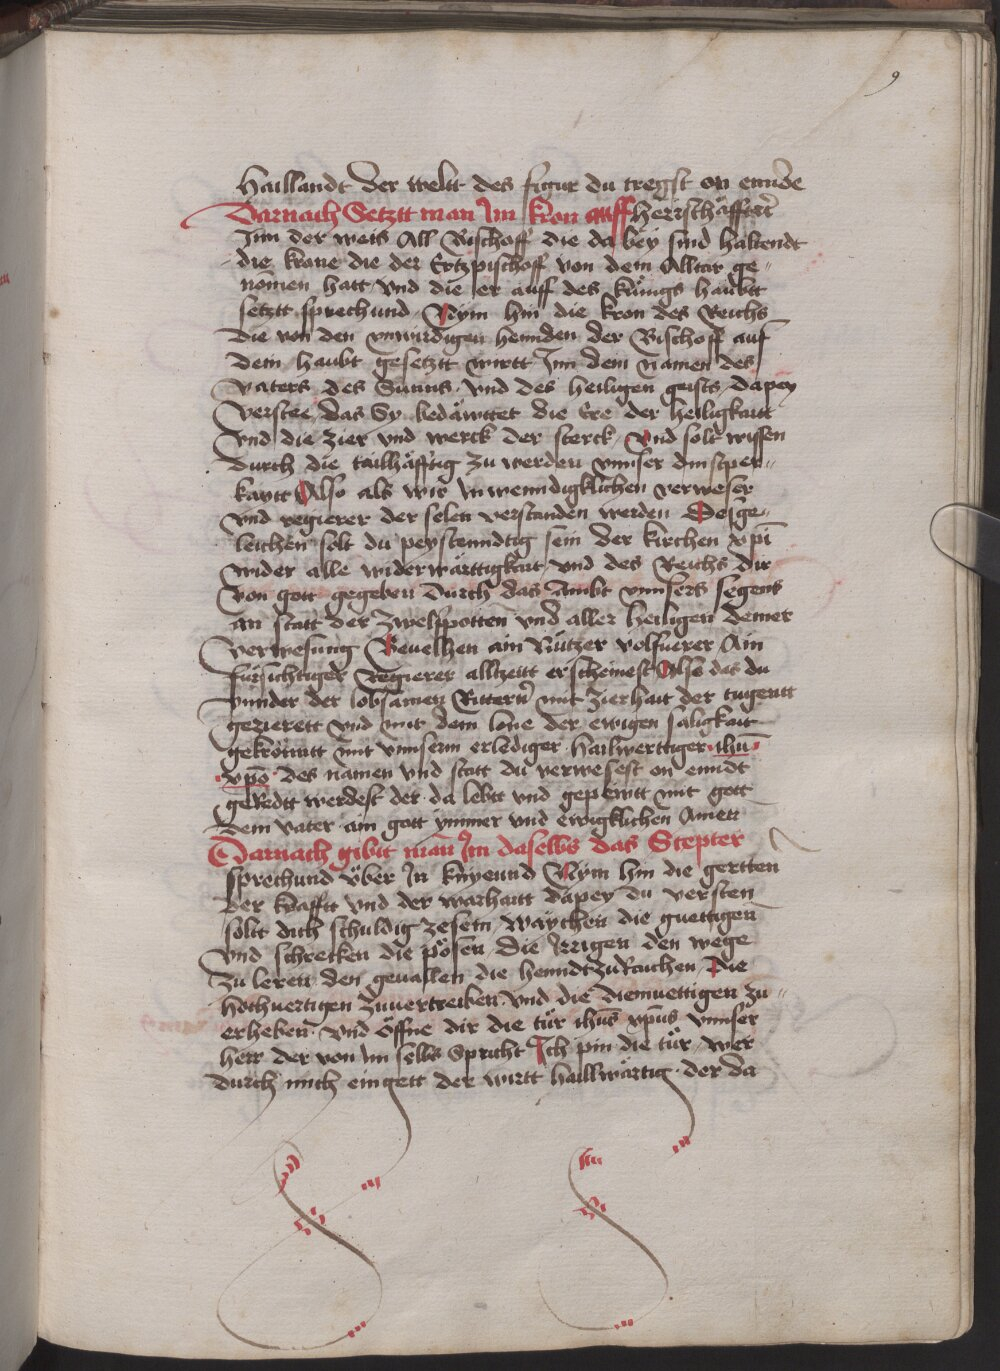 9
Haillandt der weltt des figur du tregst on ennde
Darnach Setztt man Im kron auff herrschäffter
Inn der weis All Bischoff die da bey sind haltendt
die krone die der Ertzpischoff von dem Alltar ge„
nomen hatt vnd die er auff des künigs haubtt
setztt sprechund Nym hin die kron des Reichs
die von den vnwirdigen hennden der Bischoff auf
dein haubt gesetztt wirtt Inn dem namen des
vaters des Sunns vnd des heiligen geists dapey
verstee das Sy bedäwttet die Ere der heiligkaitt
vnd die zier vnd werck der sterck Vnd solt wissen
durch die tailhäfftig zu werden vnnser dinstper„
kaytt Also als wir Inwenndigklichen verweser
vnd regierer der selen verstanden werden Desge„
leichen solt du peystenndtig sein der kirchen xpī
wider alle widerwärttigkait vnd des Reichs dir
von gott gegeben durch das Ambt vnnsers segens
an statt der zwelfpotten vnd aller heiligen deiner
verwesung Beuelhen ain Nützer volfuerer Ain
fürsichtiger Regierer alltzeitt erscheinest Also das du
vnnder der lobsamen Rittern mit zierhait der tugentt
gezierett vnd mit dem lone der ewigen säligkait
gekrönntt mit vnnserm erlediger hailwerttiger ihū
xpō des namen vnd statt du verwesest on enndt
geRedtt werdest der da lebtt vnd gepewtt mit gott
dem vater ain gott ymmer vnd ewigklichen Amen
Darnach gibtt man Im daselbs das Scepter
sprechund vber In knyeund Nym hin die gertten
der krafftt vnd der warhaitt dapey du versten
soltt dich schuldig zesein waychen die guettigen
vnd schrecken die pösen die Irrigen den wege
zu leren den geuallen die henndt zu Raichen Die
hochuertigen zuuertreiben vnd die diemuettigen zu„
erheben vnd öffne dir die tür ihus xpus vnnser
herr der von im selbs spricht Ich pin die tür wer
durch mich eingett der wirtt hailwärtig der da